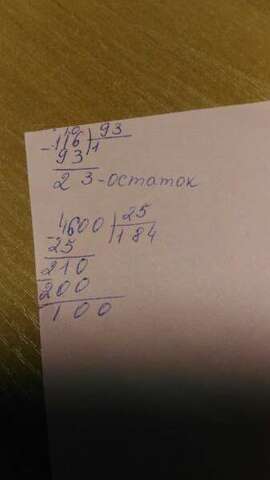 116 93
- 93 1
23-остаток
4600 25
- 25 184
210
- 200
100